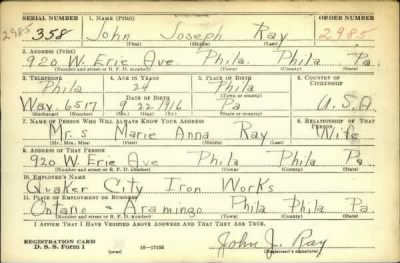 SERIAL NUMBER 1. NAME (Print) ORDER NUMBER
2985 358 John Joseph Ray 2985
(First) (Middle) (Last)
2. ADDRESS (Print)
920 W. Erie Ave Phila. Phila Pa.
(Number and street or R. F. D. number) (Town) (County) (State)
3. TELEPHONE 4. AGE IN YEARS 5. PLACE OF BIRTH 6. COUNTRY OF CITIZENSHIP
Phila 24 Phila
(Town or county)
DATE OF BIRTH
Wav. 6517 9 22 1916 Pa U.S.A.
(Exchange) (Number) (Mo.) (Day) (Yr.) (State or country)
7. NAME OF PERSON WHO WILL ALWAYS KNOW YOUR ADDRESS 8. RELATIONSHIP OF THAT PERSON
Mr.s Marie Anna Ray Wife
(Mr., Mrs., Miss) (First) (Middle) (Last)
9. ADDRESS OF THAT PERSON
920 W. Erie Ave Phila Phila Pa.
(Number and street or R. F. D. number) (Town) (County) (State)
10. EMPLOYER'S NAME
Quaker City Iron Works
11. PLACE OF EMPLOYMENT OR BUSINESS
Ontario - Aramingo Phila Phila Pa.
(Number and street or R. F. D. number) (Town) (County) (State)
I AFFIRM THAT I HAVE VERIFIED ABOVE ANSWERS AND THAT THEY ARE TRUE.
REGISTRATION CARD
D. S. S. Form 1 (over) 16—17105 John J. Ray
(Registrant's signature)